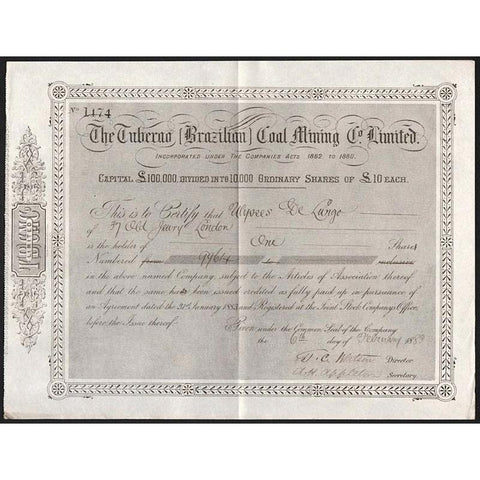 No 1174
The Tuberao (Brazilian) Coal Mining Co. Limited.
INCORPORATED UNDER THE COMPANIES ACTS 1862 TO 1880.
CAPITAL £100,000, DIVIDED INTO 10,000 ORDINARY SHARES OF £10 EACH.
This is to Certify that Ulysses De Lungo
of 37 Old Jewry London
is the holder of One Share
Numbered from 9764 to inclusive
in the above named Company, subject to the Articles of Association thereof
and that the same has been issued credited as fully paid up in pursuance of
an Agreement dated the 31st January 1883 and Registered at the Joint Stock Companies Office,
before the Issue thereof.
Given under the Common Seal of the Company
the 6th day of February 1883
C. Watson Director
A.H. Appleton Secretary.